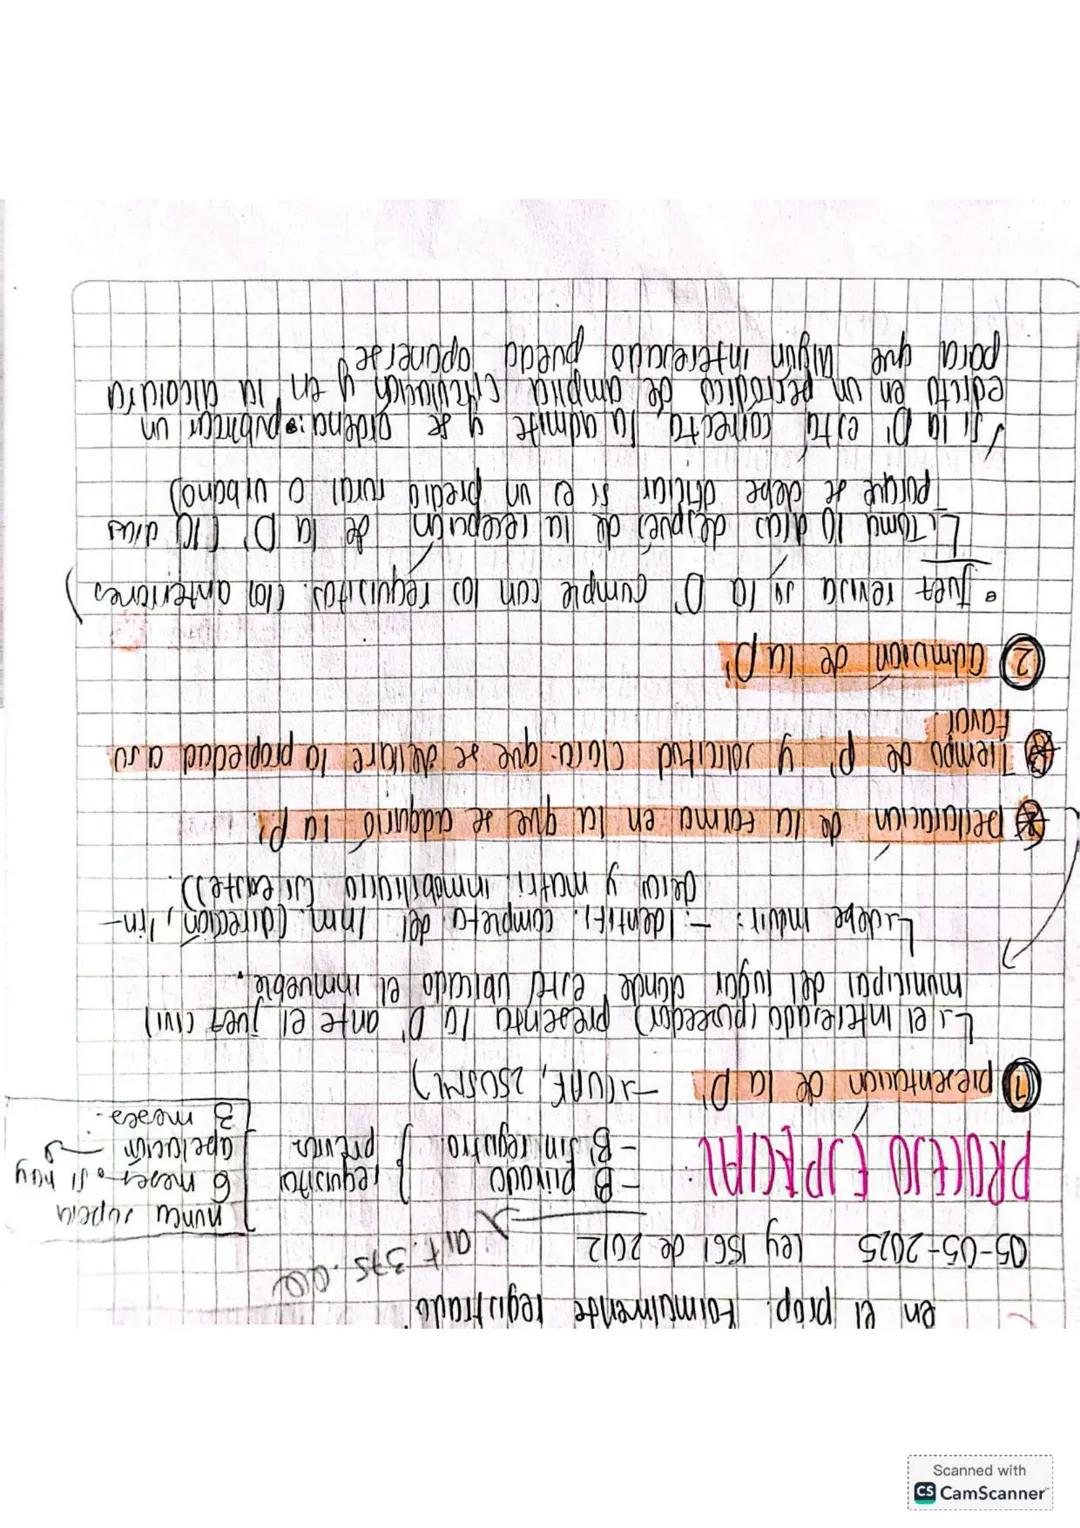 en el prop. formalmente registrado
05-05-2025 Ley 1561 de 2012 art. 375.
nunca supera
6 meses • si hay
apelación
3 meses.
PROCESO ESPECIAL - B privado
- B' sin registro. } requisitos previos
① presentación de la D' → (UAF, 250SML)
↳ el interesado (poseedor) presenta la D' ante el juez civil
municipal del lugar donde está ubicado el inmueble.
↳ debe incluir: - Identifi. completa del Inm. (dirección, lin-
deros y matri. inmobiliaria (si existe).
Declaración de la forma en la que se adquirió la p'.
Tiempo de p' y solicitud clara: que se declare la propiedad a su
favor.
② admisión de la D'
• Juez revisa si la D' cumple con los requisitos. (los anteriores)
↳ Toma 10 días después de la recepción de la D' (10 días
porque se debe oficiar si es un predio rural o urbano)
✓ si la D' está correcta la admite y se ordena: • publicar un
edicto en un periódico de amplia circulación y en la alcaldía
para que algún interesado pueda oponerse.
Scanned with
CS CamScanner